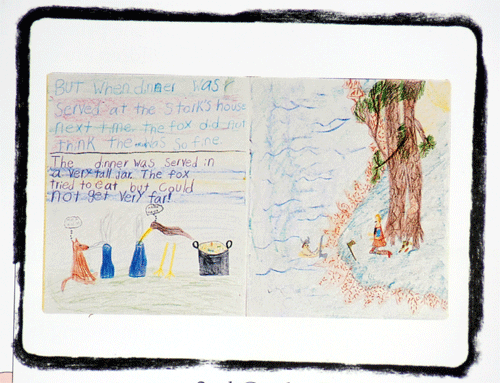 BUT When dinner was
Served at the Stork's house
next time the fox did not
think the was So fine.
The dinner was served in
a very tall jar. The fox
tried to eat but could
not get very far!